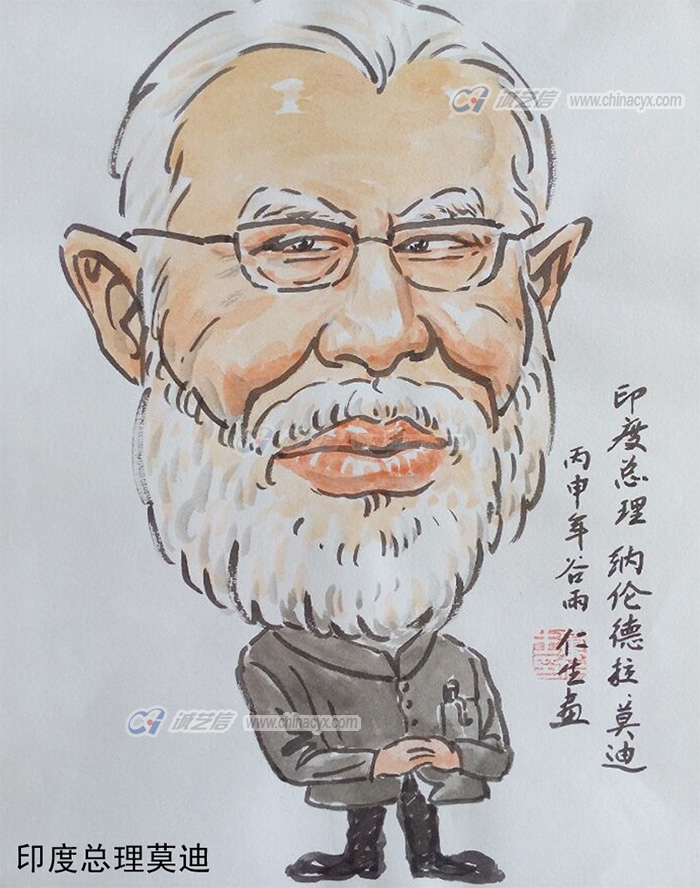 诚艺信 www.chinacyx.com
印度总理 纳伦德拉·莫迪
丙申年谷雨 仁生画
诚艺信 www.chinacyx.com
印度总理莫迪